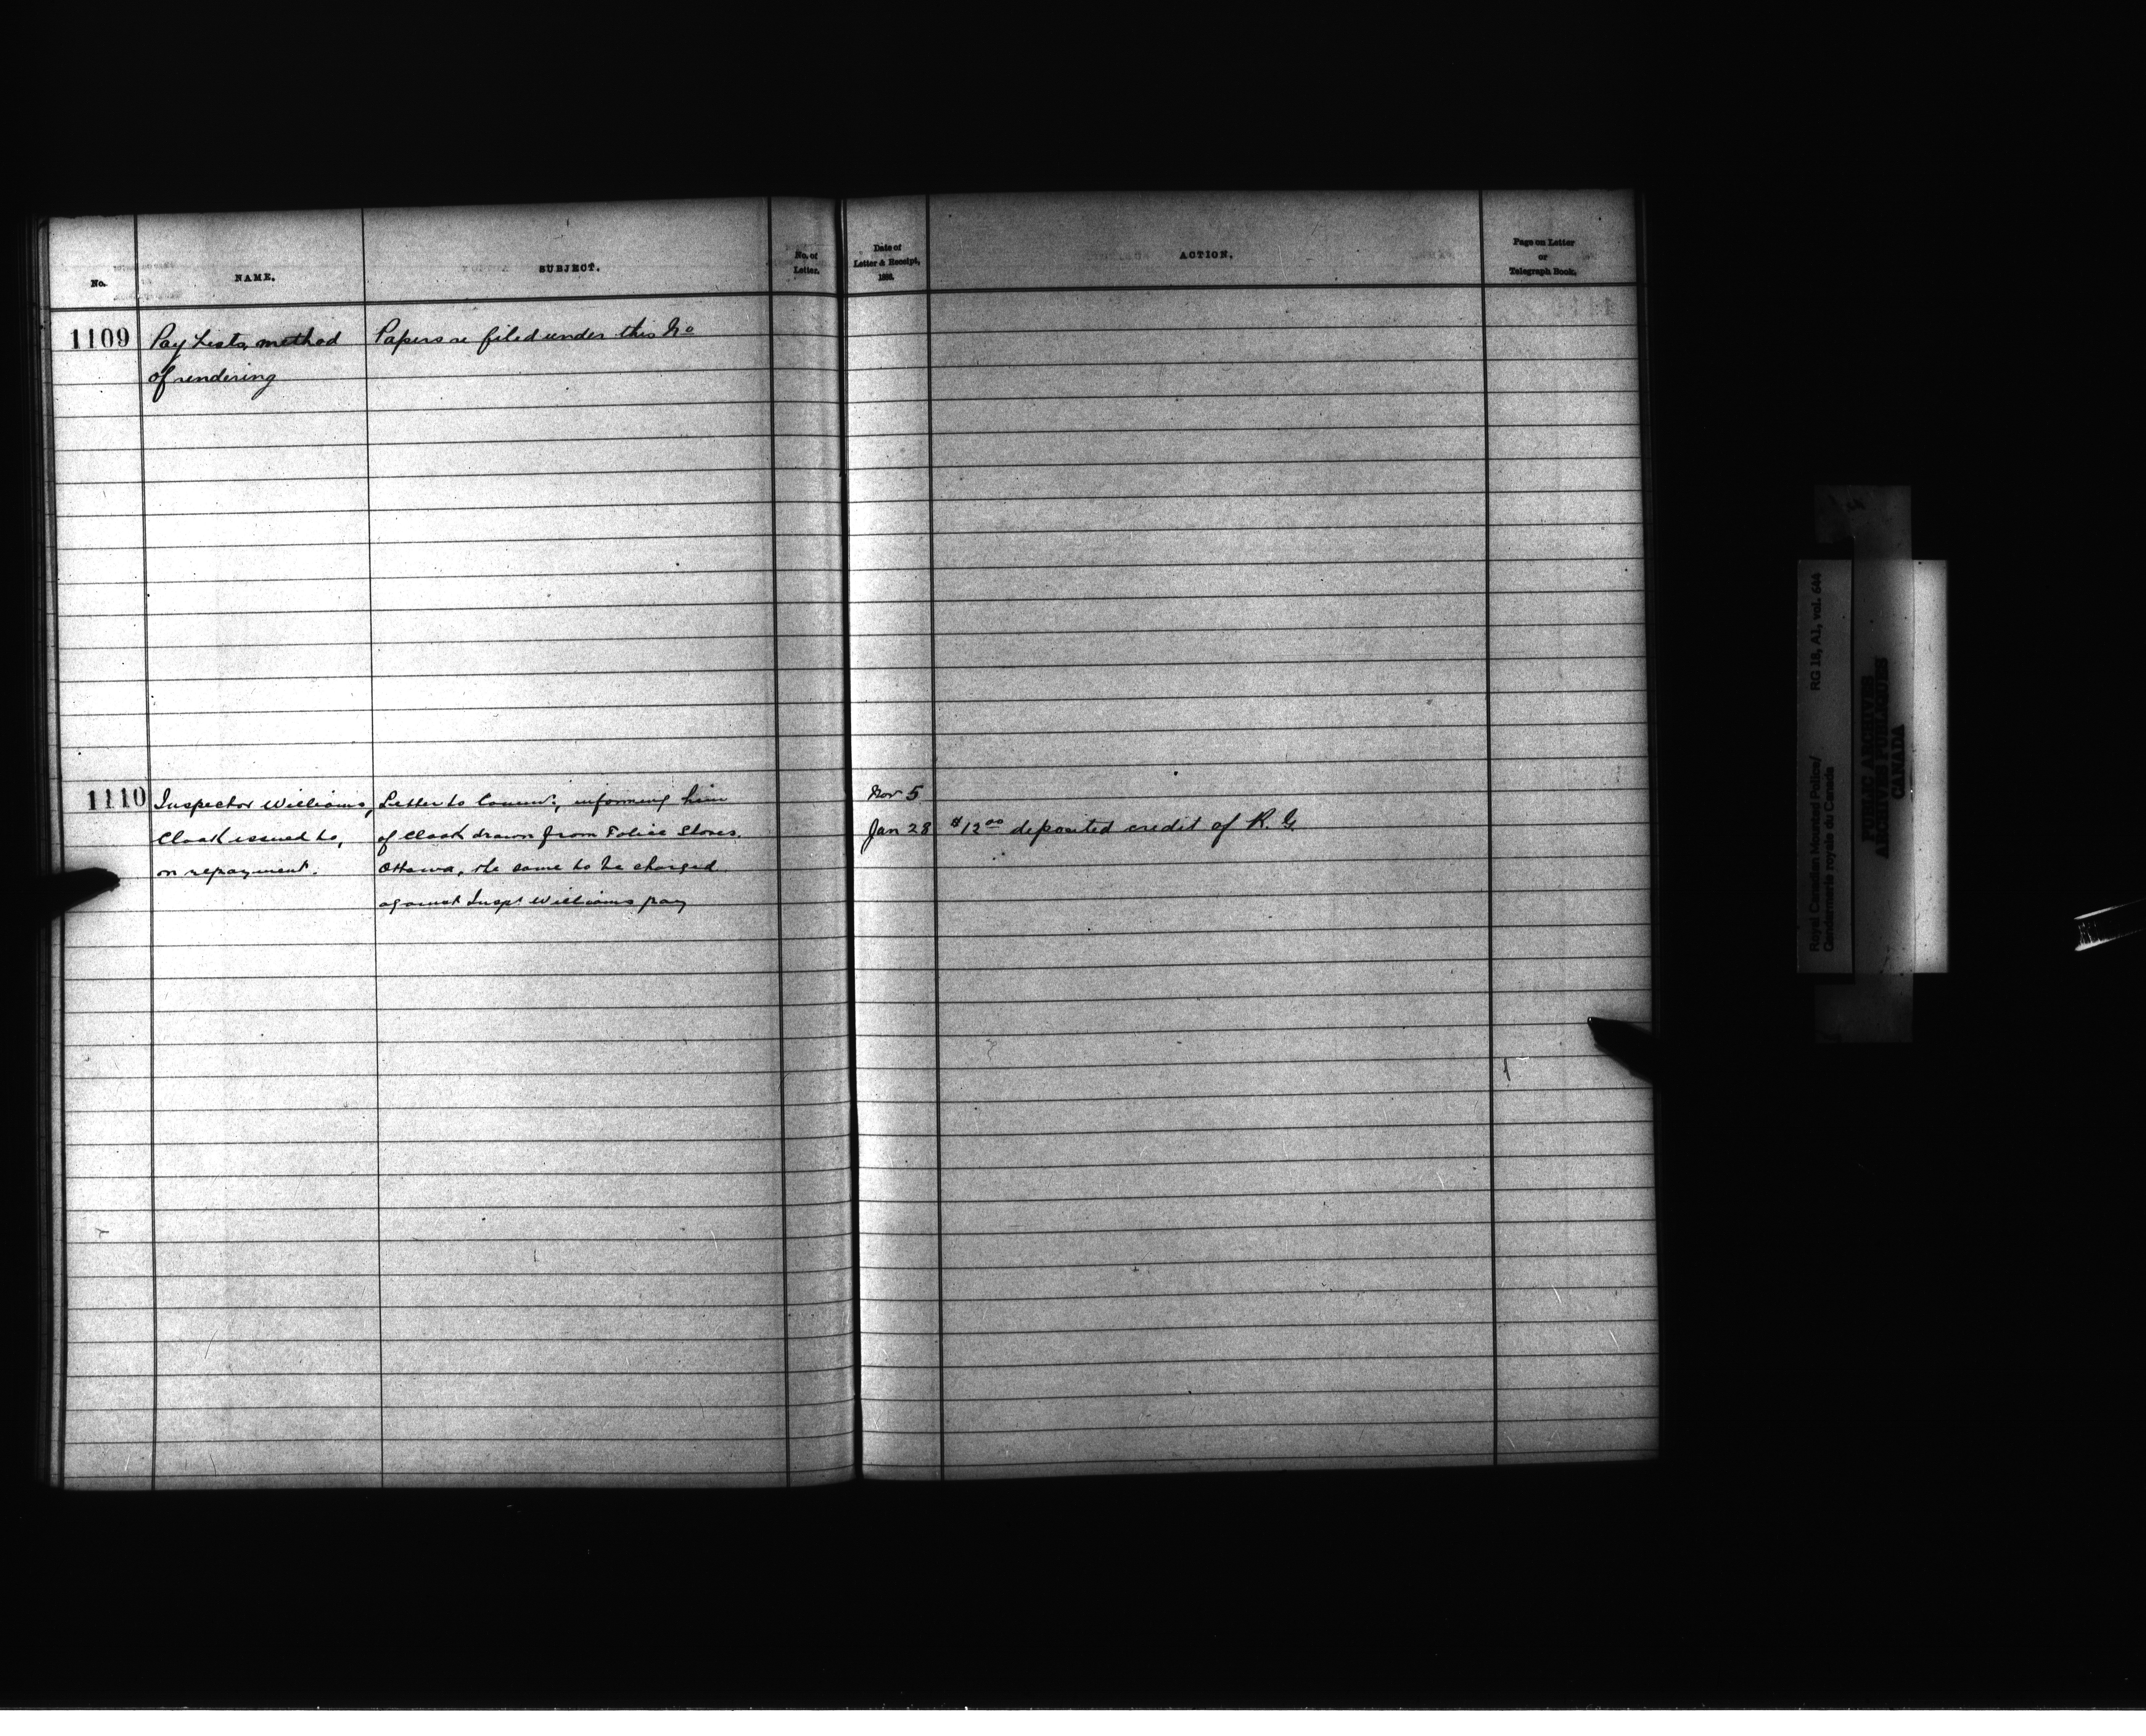 No.
NAME.
SUBJECT.
No. of
Letter.
Date of
Letter & Receipt,
ACTION.
Page on Letter
or
Telegraph Book.
1109
Pay Lists, method
of rendering
Papers re filed under this No
1110
Inspector Williams,
Cloak issued to,
on repayment.
Letter to Commr, informing him
of Cloak drawn from Police Stores.
Ottawa, the same to be charged
against Inspr Williams pay
Nov 5
Jan 28
$12 00 deposited credit of R. G.
Royal Canadian Mounted Police/
Gendarmerie royale du Canada
RG 18, A1, vol. 644
PUBLIC ARCHIVES
ARCHIVES PUBLIQUES
CANADA